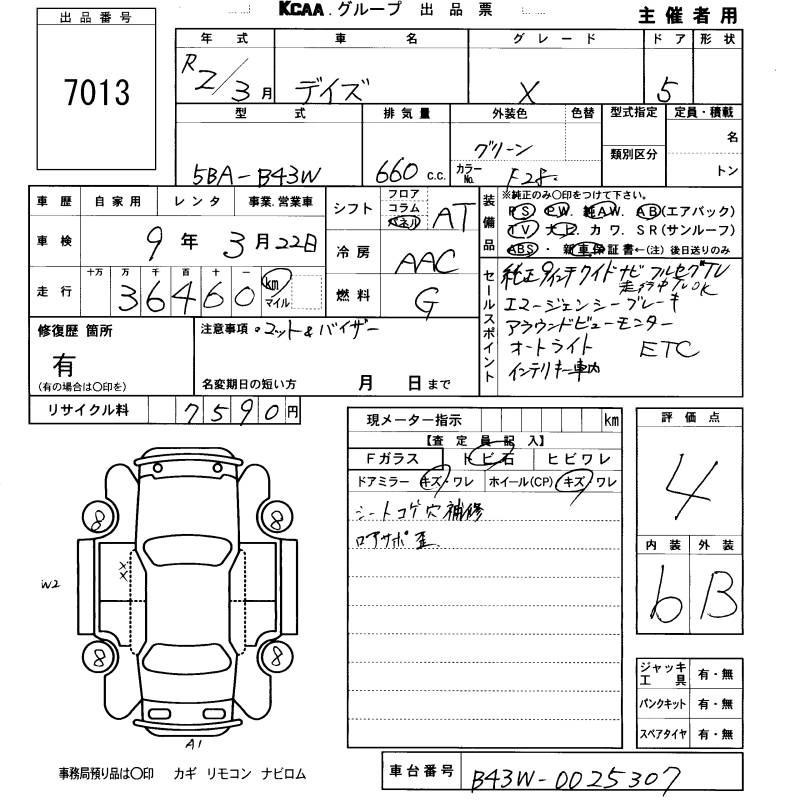 出品番号
7013
KCAA.グループ 出品票
主催者用
年式 車名 グレード ドア 形状
R2/3月 デイズ X 5
型式 排気量 外装色 色替 型式指定 定員・積載
類別区分
名
トン
5BA-B43W 660 c.c. グリーン カラーNo. F28.
車歴 自家用 レンタ 事業.営業車
車検 9年3月22日
走行 十万 万 千 百 十 一
36460 km マイル
シフト フロア コラム パネル AT
冷房 AAC
燃料 G
装備品
※純正のみ〇印をつけて下さい。
PS PW. 純AW. AB(エアバック)
TV ナビ カワ. SR(サンルーフ)
ABS・新車保証書←(注)後日送りのみ
セールスポイント
純正9インチワイドナビ フルセグTV
走行中TV OK
エマージェンシーブレーキ
アラウンドビューモニター
オートライト ETC
インテリキー 車内
修復歴 箇所
有
(有の場合は〇印を)
注意事項・マット&バイザー
名変期日の短い方 月 日まで
リサイクル料 7590円
現メーター指示 km
【査定員記入】
Fガラス トビ石 ヒビワレ
ドアミラー キズ・ワレ ホイール(CP) キズ・ワレ
シートコゲ穴補修
ロアサポ歪
評価点
4
内装 外装
6 B
8 8
××
W2
8 8
A1
ジャッキ工具 有・無
パンクキット 有・無
スペアタイヤ 有・無
事務局預り品は〇印 カギ リモコン ナビロム
車台番号 B43W-0025307